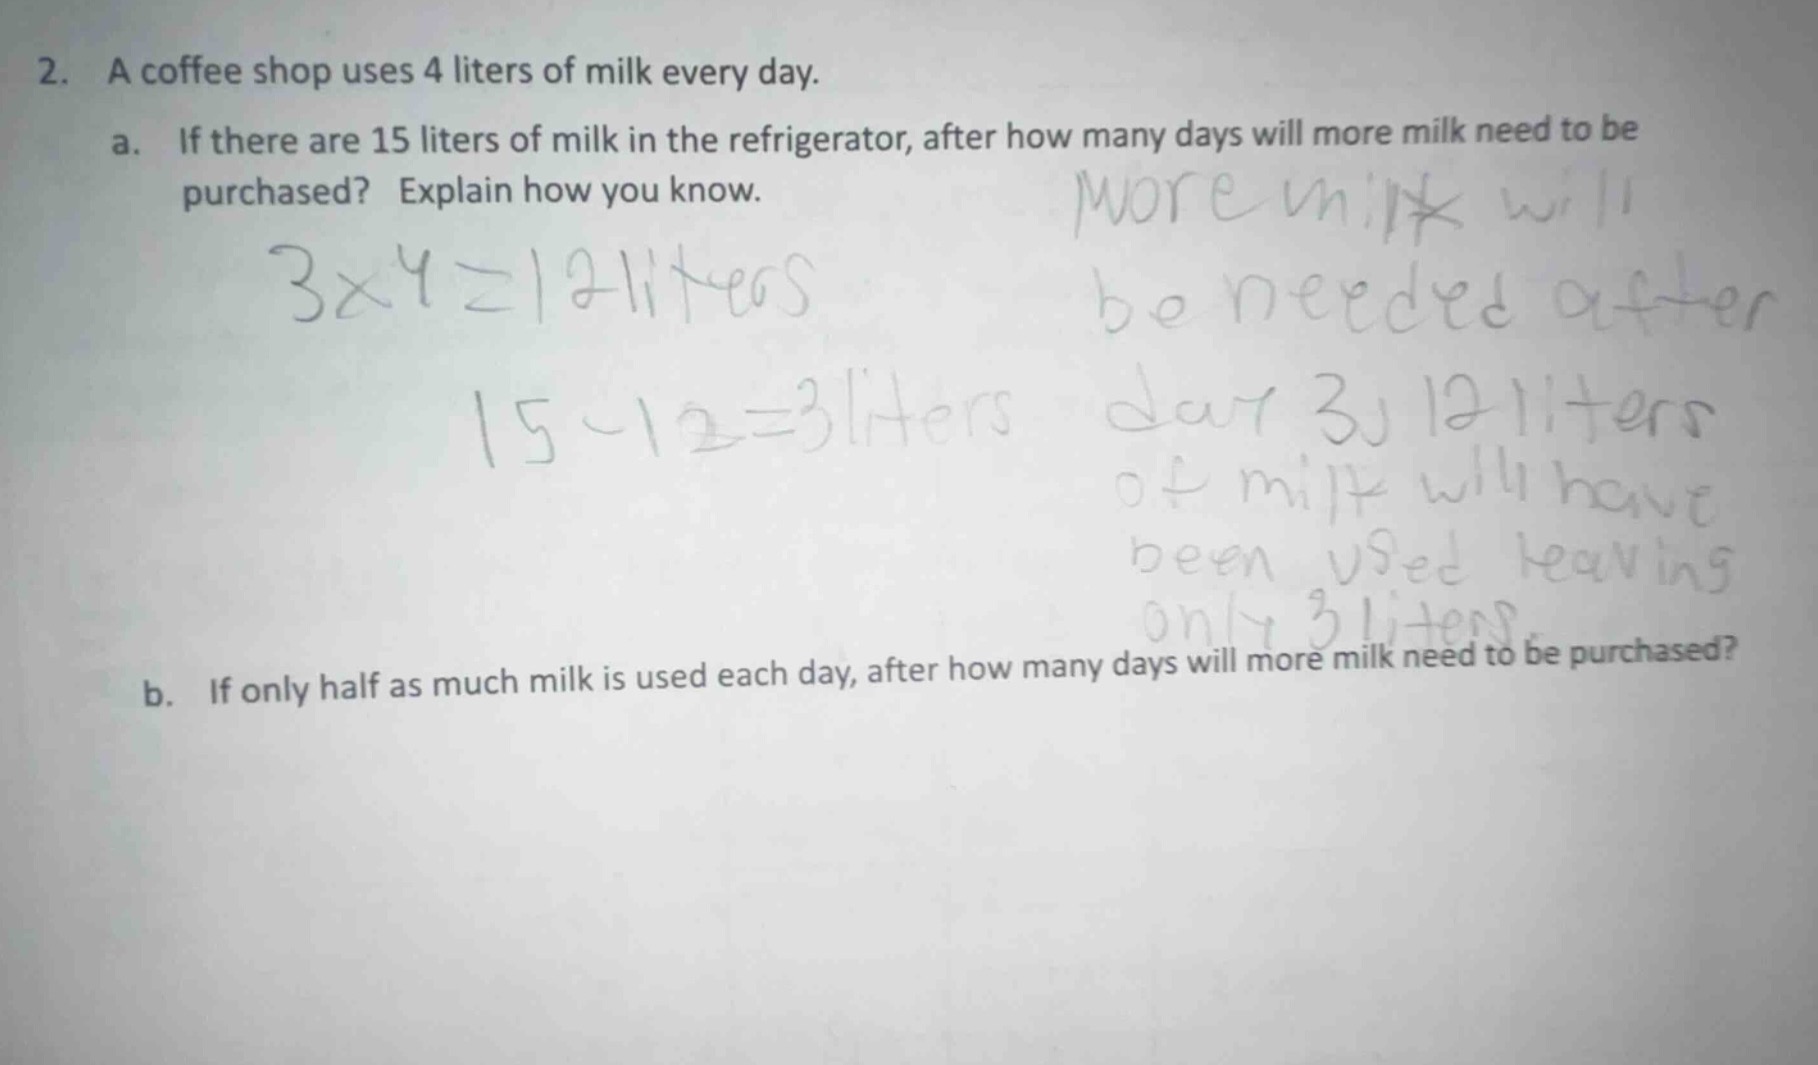 2. A coffee shop uses 4 liters of milk every day.
a. If there are 15 liters of milk in the refrigerator, after how many days will more milk need to be
purchased? Explain how you know.
More milk will
3x4=12 liters
be needed after
15-12=3 liters
day 3, 12 liters
of milk will have
been used leaving
only 3 liters.
b. If only half as much milk is used each day, after how many days will more milk need to be purchased?